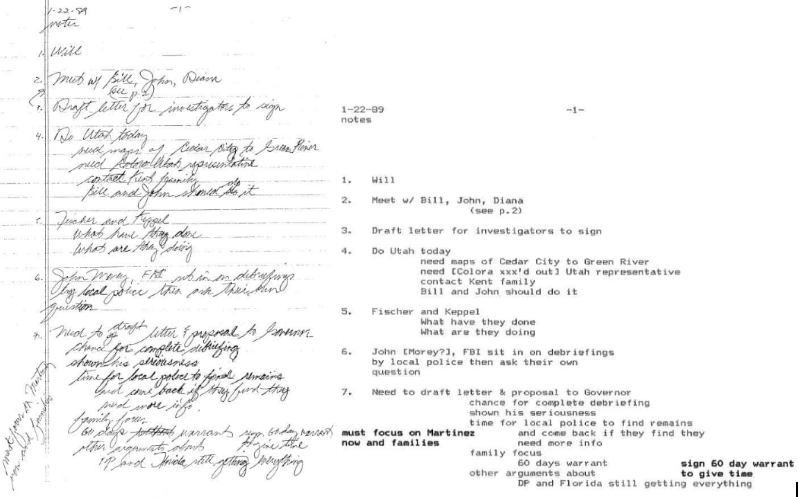 1-22-89 -1-
notes
1. Will
2. Meet w/ Bill, John, Diana
(see p.2)
3. Draft letter for investigators to sign
4. Do Utah today
need maps of Cedar City to Green River
need Utah representative
contact Kent family
Bill and John should do it
5. Fischer and Keppel
What have they done
What are they doing
6. John FBI sit in on debriefings
by local police then ask their own
question
7. Need to draft letter & proposal to Governor
chance for complete debriefing
shown his seriousness
time for local police to find remains
and come back if they find they
need more info
family focus
60 days warrant sign 60 day warrant
other arguments about to give time
DP and Florida still getting everything
must focus on Martinez
now and families
1-22-89 -1-
notes
1. Will
2. Meet w/ Bill, John, Diana
(see p.2)
3. Draft letter for investigators to sign
4. Do Utah today
need maps of Cedar City to Green River
need [Colora xxx'd out] Utah representative
contact Kent family
Bill and John should do it
5. Fischer and Keppel
What have they done
What are they doing
6. John [Morey?], FBI sit in on debriefings
by local police then ask their own
question
7. Need to draft letter & proposal to Governor
chance for complete debriefing
shown his seriousness
time for local police to find remains
must focus on Martinez and come back if they find they
now and families need more info
family focus
60 days warrant sign 60 day warrant
other arguments about to give time
DP and Florida still getting everything